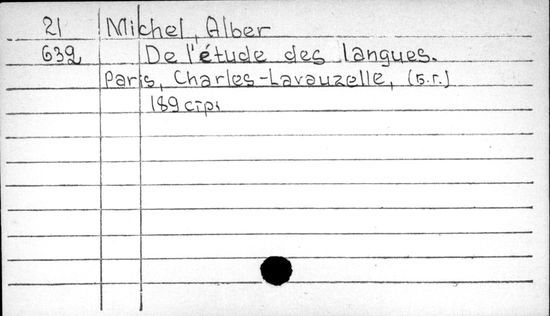 21 Michel, Alber
632 De l'étude des langues.
Paris, Charles-Lavauzelle, (б.г.)
189 стр.